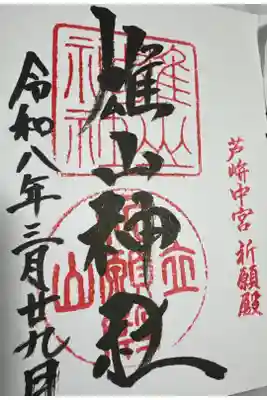 芦峅中宮 祈願殿
雄山神社
雄山神社
立山
祈願殿
令和八年三月廿九日